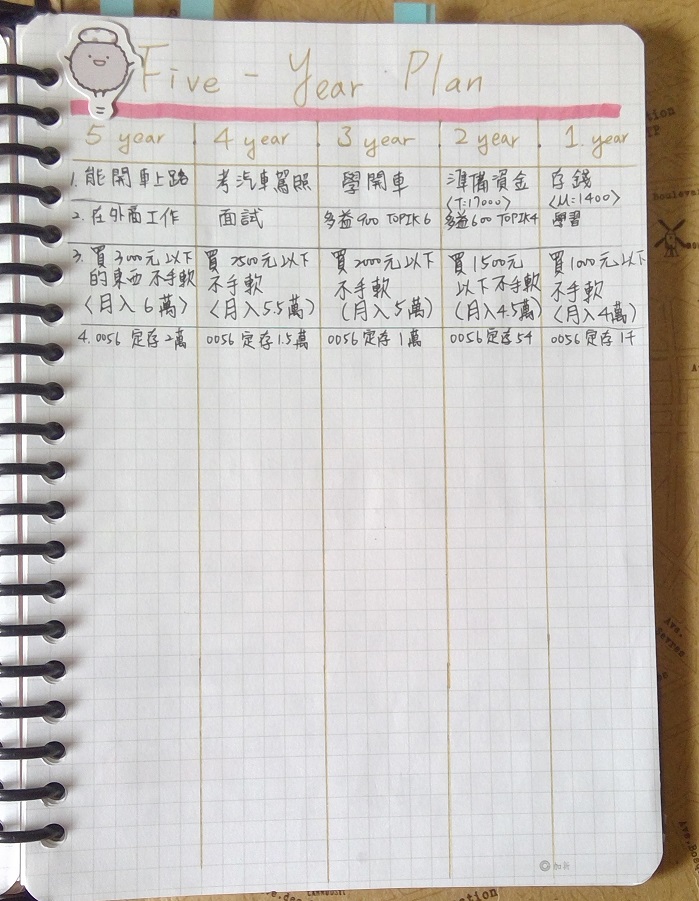 Five - Year Plan
5 year
4 year
3 year
2 year
1 year
1. 能開車上路
考汽車駕照
學開車
準備資金
<T:17000>
存錢
<M:1400>
2. 在外商工作
面試
多益 900 TOPIK 6
多益 600 TOPIK 4
學習
3. 買 3000元 以下
的東西 不手軟
<月入 6 萬>
買 2500元 以下
不手軟
<月入 5.5萬>
買 2000元 以下
不手軟
(月入 5萬)
買 1500元
以下 不手軟
(月入4.5萬)
買 1000元 以下
不手軟
(月入 4萬)
4. 0056 定存 2萬
0056 定存 1.5萬
0056 定存 1萬
0056 定存 5千
0056 定存 1千
Boulevard
Ave.